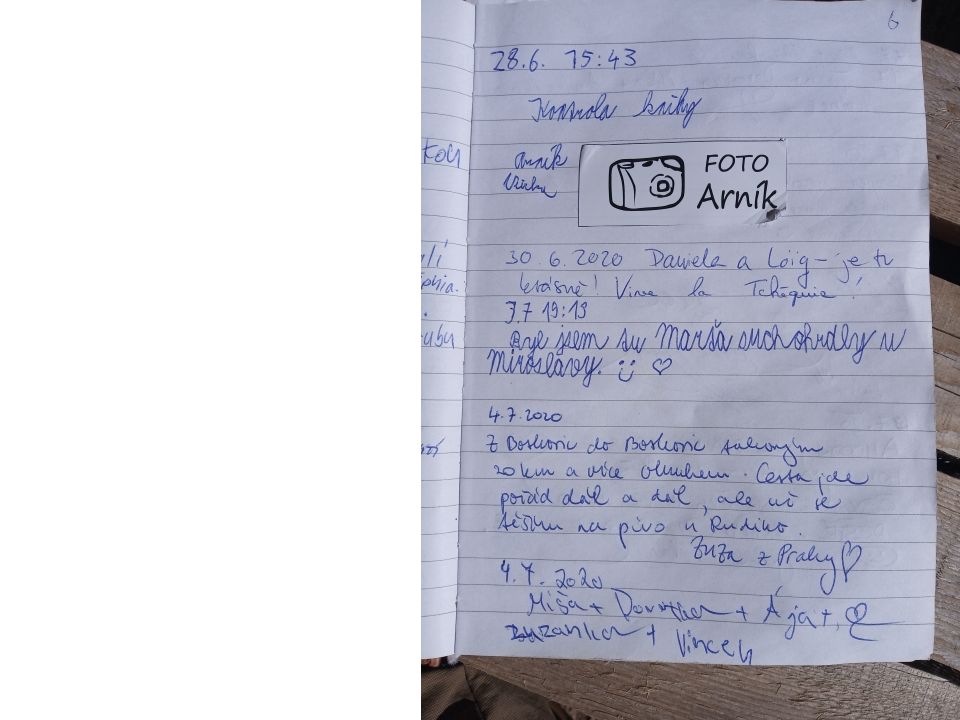 6
28.6. 15:43
Kontrola knihy
Arník
FOTO
Arník
30.6.2020 Daniela a Loïg - je tu
krásně! Vive la Tchéquie!
3.7 19:19
Byl jsem tu Marša suchohrdly u
Miroslavy.
4.7.2020
Z Boskovic do Boskovic takovým
20 km a více obloukem. Cesta jde
pořád dál a dál, ale už se
těším na pivo u Rudiho.
Zuza z Prahy
4.7.2020
Míša + + Ája +
zanka + Vincek
koly